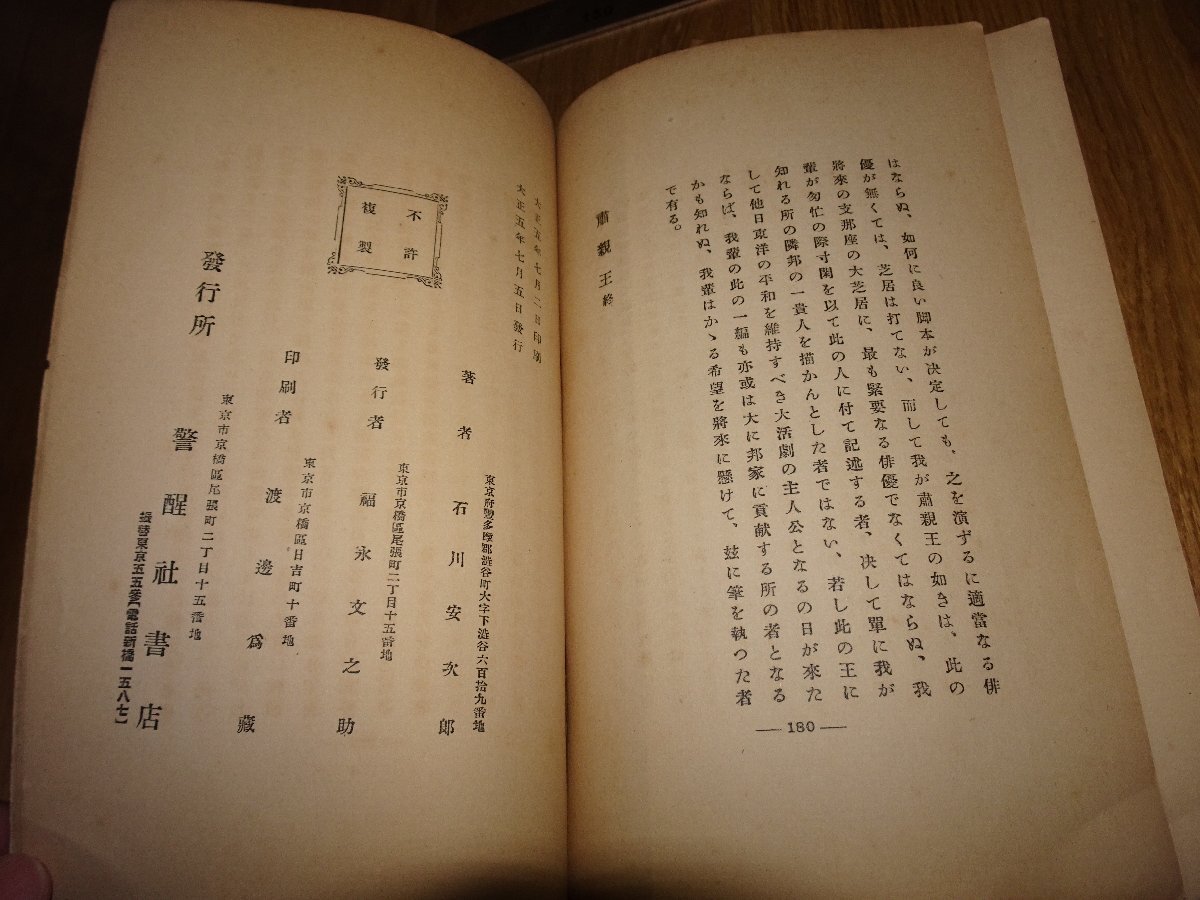 はならぬ、如何に良い脚本が决定しても、之を演ずるに適當なる俳
優が無くては、芝居は打てない、而して我が肅親王の如きは、此の
將來の支那座の大芝居に、最も緊要なる俳優でなくてはならぬ、我
輩が匆忙の際寸閑を以て此の人に付て記述する者、决して單に我が
知れる所の隣邦の一貴人を描かんとした者ではない、若し此の王に
して他日東洋の平和を維持すべき大活劇の主人公となるの日が來た
ならば、我輩の此の一編も亦或は大に邦家に貢献する所の者となる
かも知れぬ、我輩はかゝる希望を將來に懸けて、玆に筆を執つた者
で有る。
肅親王 終
— 180 —
大正五年七月二日印刷
大正五年七月五日發行
不許
複製
東京府豐多摩郡澁谷町大字下澁谷六百拾九番地
著者 石川安次郎
東京市京橋區尾張町二丁目十五番地
發行者 福永文之助
東京市京橋區日吉町十番地
印刷者 渡邊爲藏
東京市京橋區尾張町二丁目十五番地
發行所 警醒社書店
振替東京五五參【電話新橋一五八七】